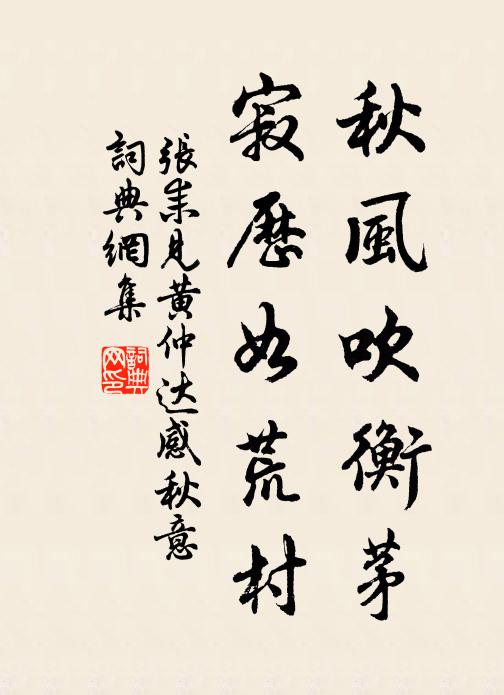 秋風吹衡茅
寂歷如荒村
張耒見黄仲达感秋意
詞典網集
詞典
网印